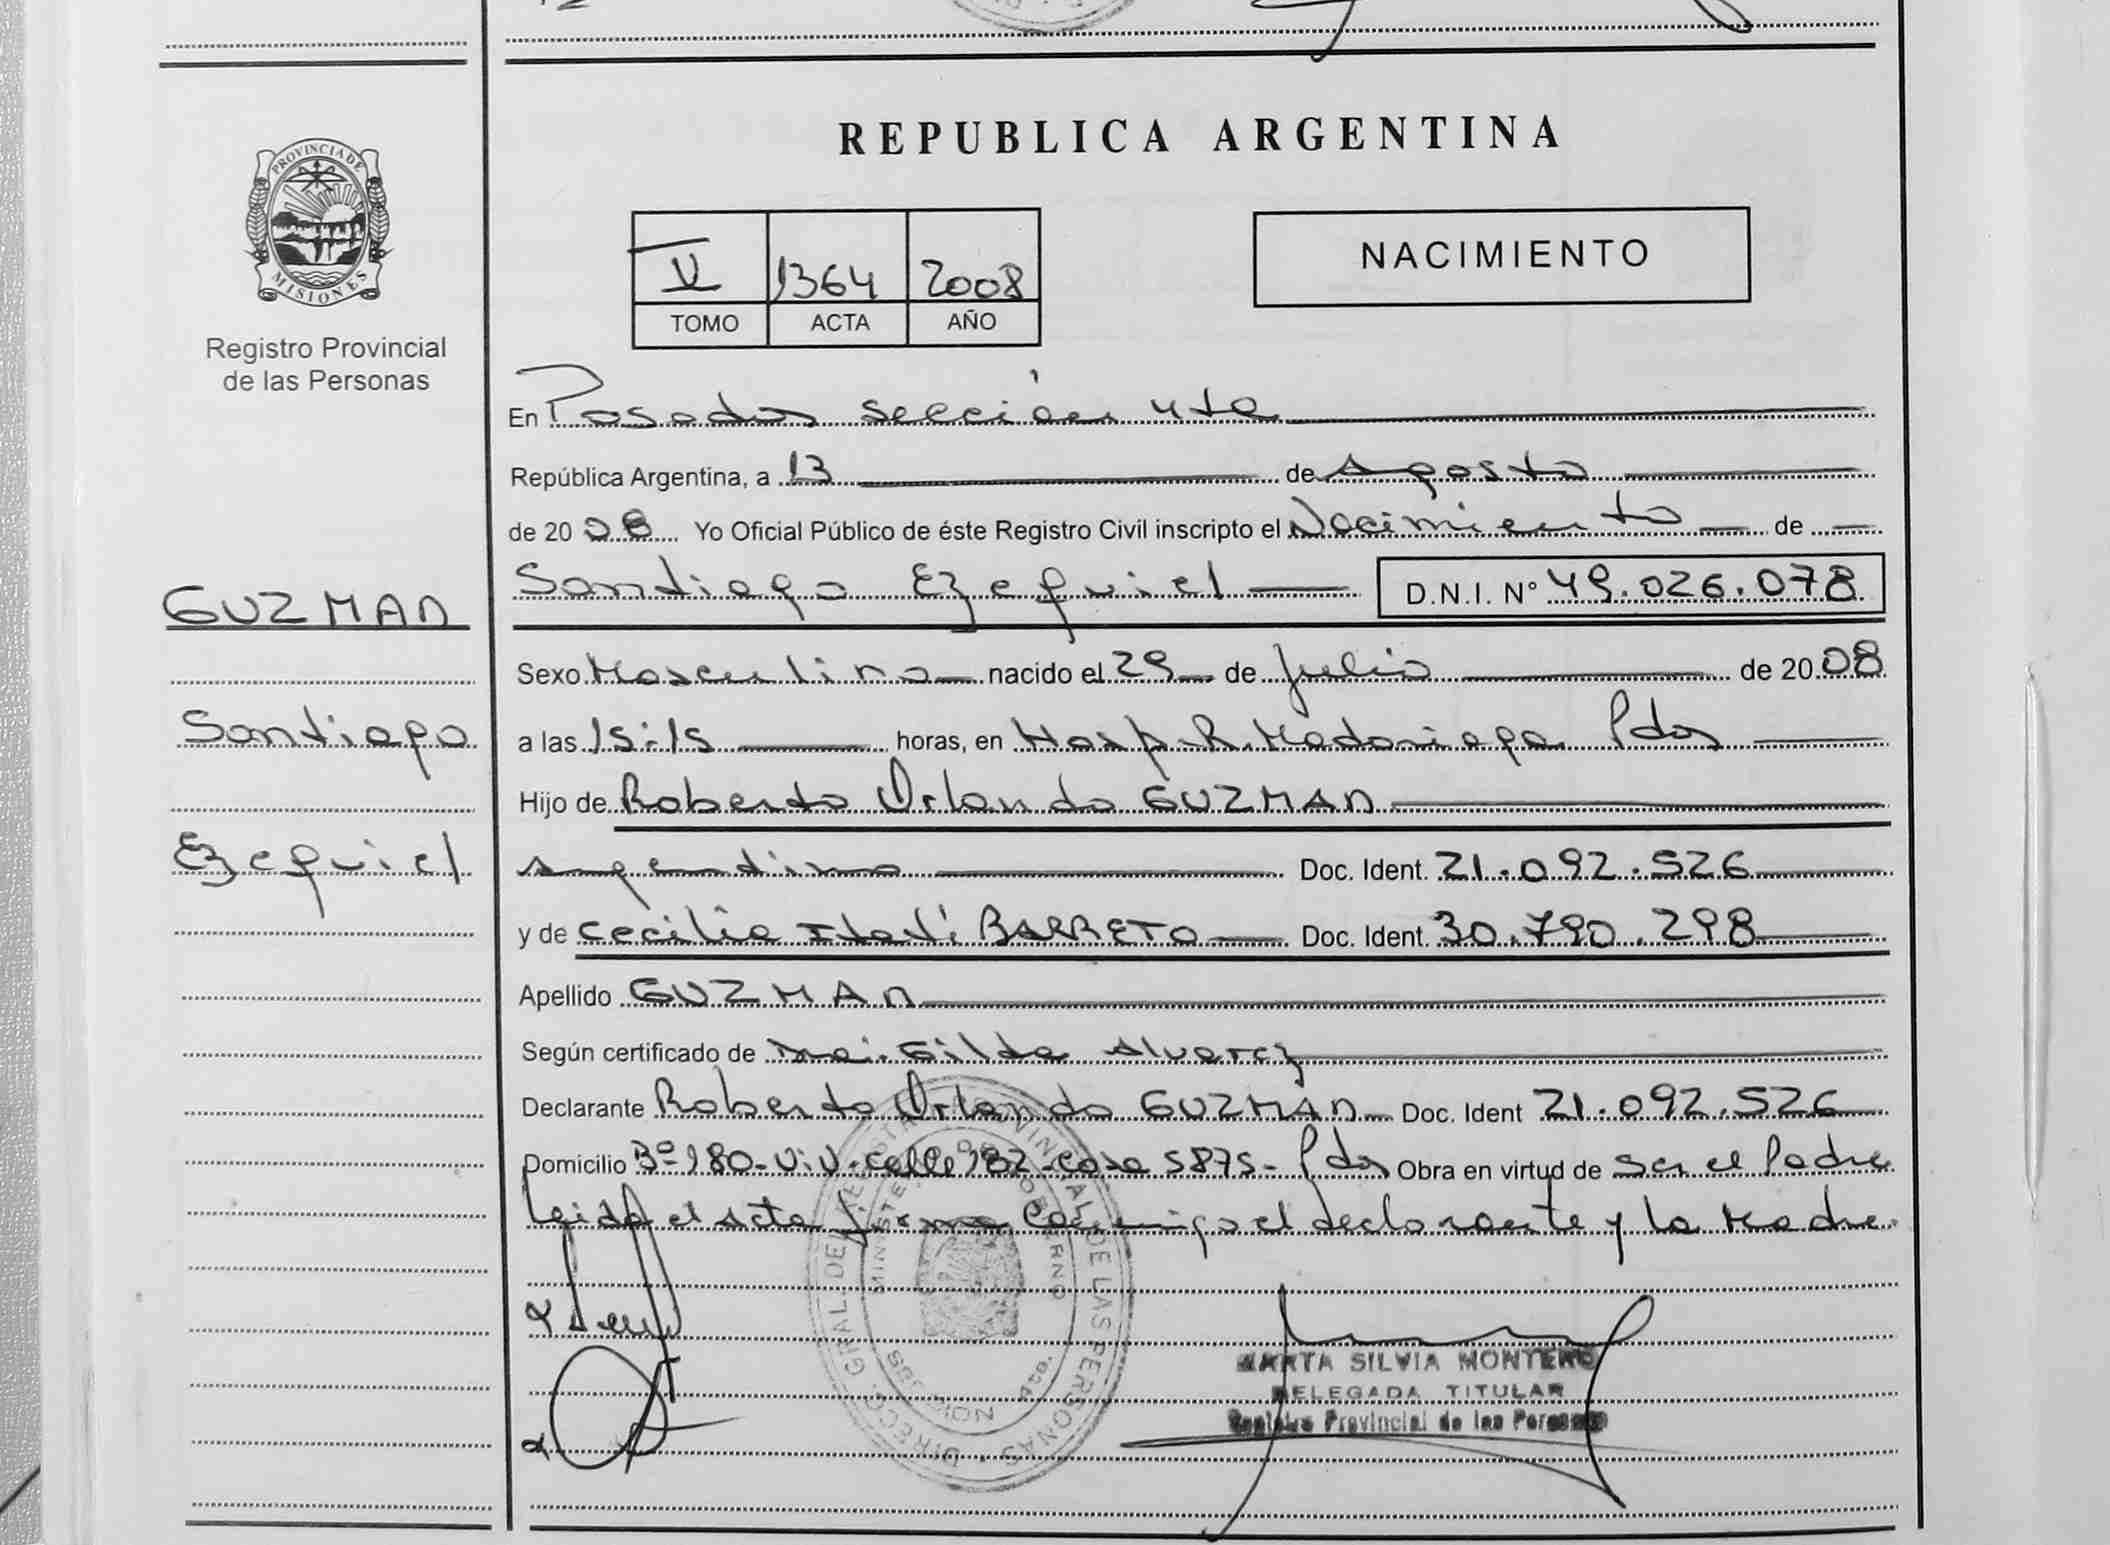 REPUBLICA ARGENTINA
PROVINCIA DE
MISIONES
Registro Provincial
de las Personas
V 1364 2008
TOMO ACTA AÑO
NACIMIENTO
En Posadas sección 4ta
República Argentina, a 13 de Agosto
de 20 08 Yo Oficial Público de éste Registro Civil inscripto el Nacimiento de
Santiago Ezequiel D.N.I. Nº 49.026.078
GUZMAN
Santiago
Ezequiel
Sexo Masculino nacido el 29 de Julio de 20 08
a las 15:15 horas, en Hosp. R. Madariaga Pdas
Hijo de Roberto Orlando GUZMAN
Argentino Doc. Ident. 21.092.526
y de Cecilia Itatí BARRETO Doc. Ident. 30.790.298
Apellido GUZMAN
Según certificado de Gilda Alvarez
Declarante Roberto Orlando GUZMAN Doc. Ident 21.092.526
Domicilio 180-Viv-calle 182-casa 5875- Pdas Obra en virtud de ser el Padre
Leida el Acta firma Conmigo el declarante y la Madre.
DIRECC. GRAL. DEL REGISTRO PROVINCIAL DE LAS PERSONAS
MINISTERIO DE GOBIERNO
MARTA SILVIA MONTERO
DELEGADA TITULAR
Registro Provincial de las Personas